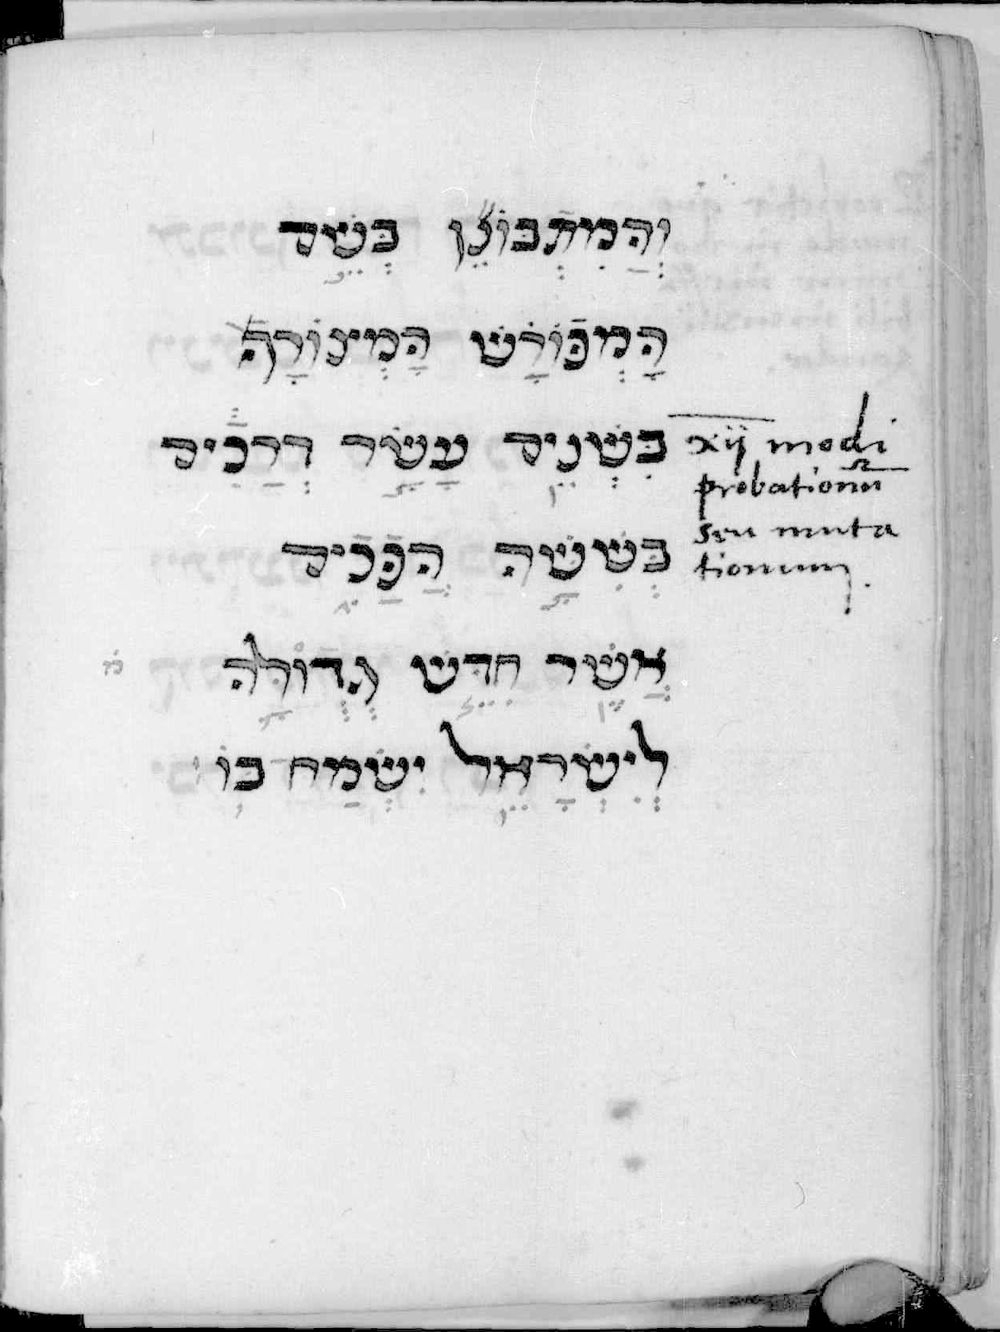 וְהַמִתְבּוֹנֵן בְּשֵׁם
הָמְפּוֹרָשׁ הָמְצוֹרָף
בִּשְׁנֵים עָשָׂר דְרַכִּים
בְּשִׁשָּׁה הֲפַּכִים
אֲשֶׁר חִדֵשׁ גְדוֹלָה
לְיִשְׂרָאֵל יִשְׂמַח בּוֹ
xij modi
probationum
seu muta
tionum